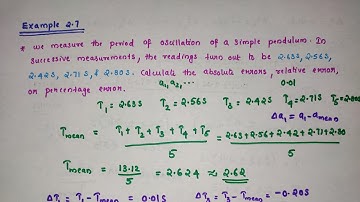 Example 2.7
* we measure the period of oscillation of a simple pendulum. In
successive measurements, the readings turn out to be 2.63s, 2.56s,
2.42s, 2.71s, & 2.80s. Calculate the absolute errors, relative error,
or percentage error.
a₁, a₂, ... 0.01
T₁ = 2.63s T₂ = 2.56s T₃ = 2.42s T₄ = 2.71s T₅ = 2.80s
Δa₁ = a₁ - amean
Tmean = T₁ + T₂ + T₃ + T₄ + T₅ / 5 = 2.63 + 2.56 + 2.42 + 2.71 + 2.80 / 5
Tmean = 13.12 / 5 = 2.624 ≈ 2.62
ΔT₁ = T₁ - Tmean = 0.01s ΔT₃ = T₃ - Tmean = -0.20s